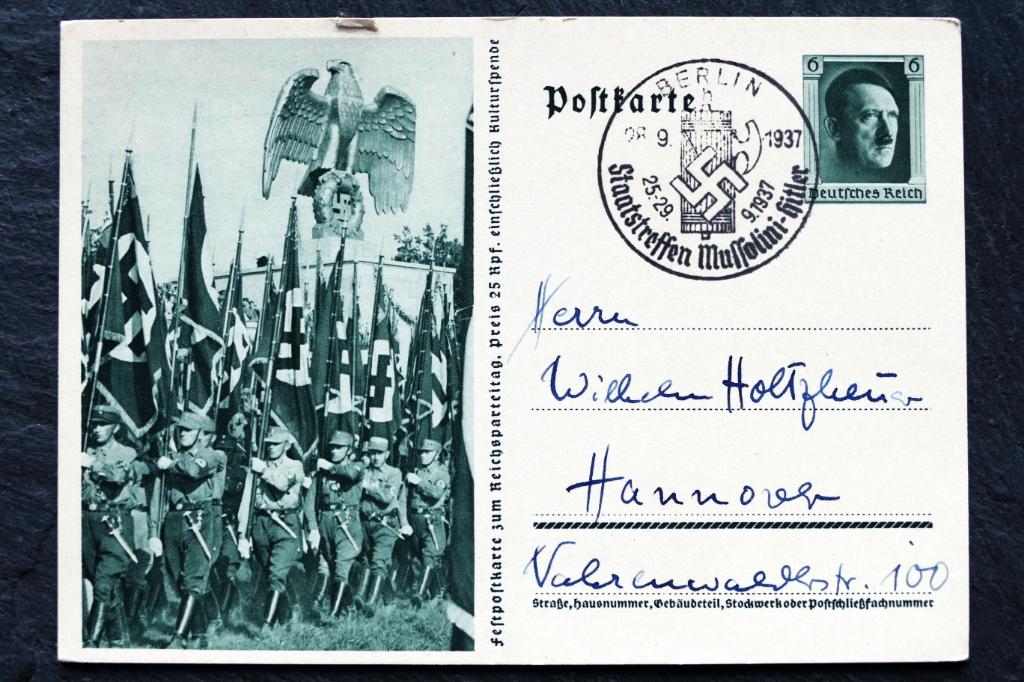 Festpostkarte zum Reichsparteitag. Preis 25 Rpf. einschließlich Kulturspende
Postkarte
BERLIN
28 9. 1937
25.-29. 9.1937
Staatstreffen Mussolini-Hitler
6 6
Deutsches Reich
Herrn
Wilhelm Holtzheuer
Hannover
Vahrenwalderstr. 100
Straße, Hausnummer, Gebäudeteil, Stockwerk oder Postschließfachnummer